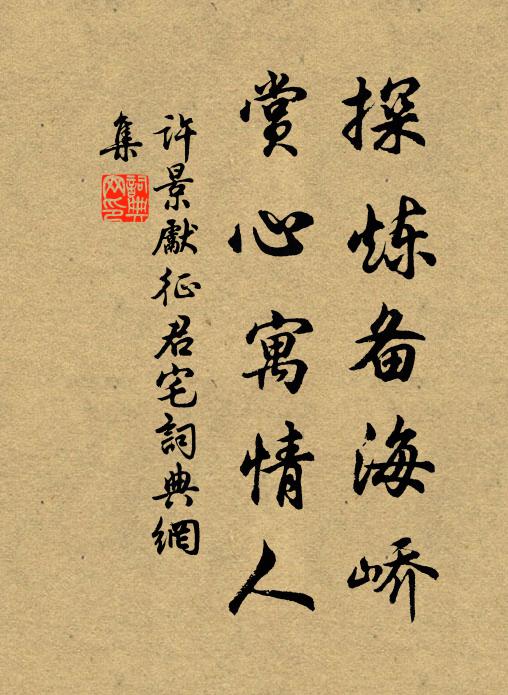 探炼备海峤
赏心寓情人
许景獻征君宅詞典網
集
詞典
网印